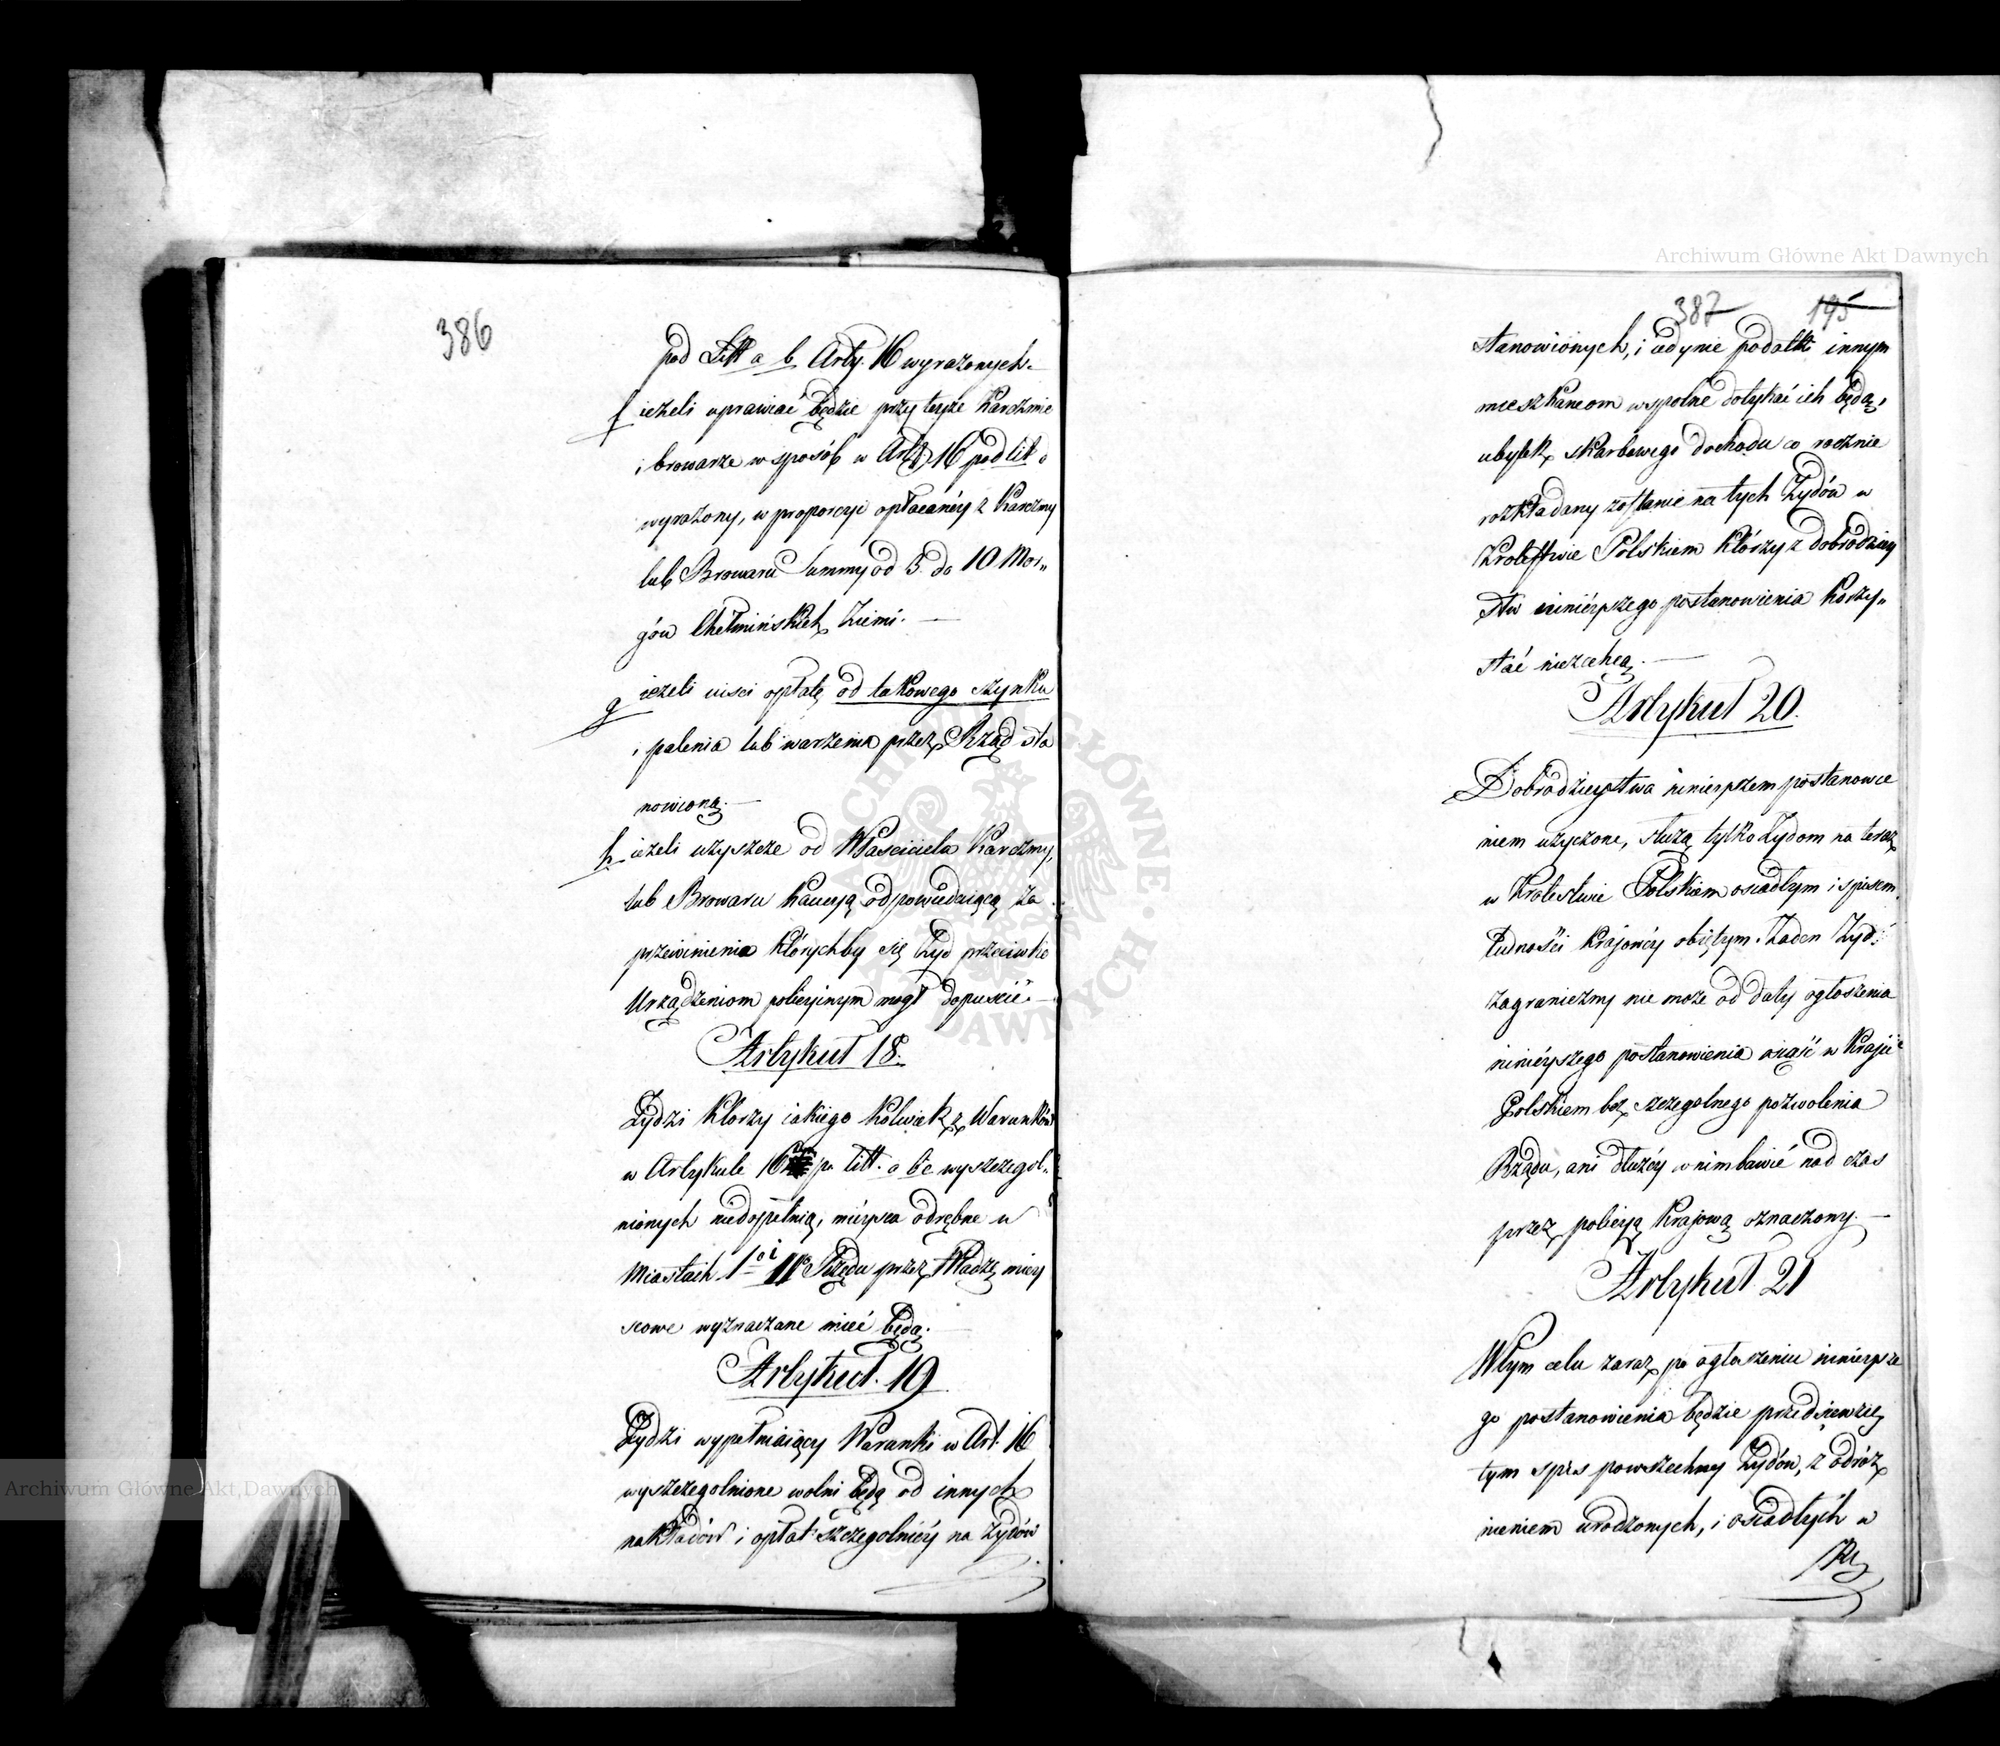 386
pod Litt a b Arty. 16 wyrażonych.
f ieżeli uprawiać będzie przy teyże Karczmie
i browarze w sposób w Arty 16 pod lit c
wyrażony, w proporcyi opłacanéy z Karczmy
lub Browaru Summy od 5 do 10 Mor„
gów Chełmińskich Ziemi.
g ieżeli uiści opłatę od takowego szynku
i palenia lub warzenia przez Rząd sta
nowioną.
h ieżeli uzyszcze od Właściciela Karczmy,
lub Browaru kaucyą odpowiedzięcą za
przewinienia którychby się Żyd przeciwko
Urządzeniom policyinym mogł dopuścić.
Artykuł 18.
Żydzi którzy iakiego kolwiek z Warunków
w Artykule 16 po litt. a b c wyszczegól„
nionych niedopełnią, mieysca odrębne w
Miastach 1o i IIo Rzędu przez Władzę miey
scowe wyznaczane mieć będą.
Artykuł. 19
Żydzi wypełniaiący Warunki w Art. 16
wyszczegolnione wolni będą od innych
nakładów i opłat szczególniéy na Żydów
387 195
stanowionych, i iedynie podatki innym
mieszkańcom wspolne dotykać ich będą,
ubytek skarbowego dochodu co rocznie
rozkładany zostanie na tych Żydów w
Krolestwie Polskiem którzy z dobrodziey
stw ninieyszego postanowienia korzy„
stać niezechcą.
Artykuł 20.
Dobrodzieystwa ninieyszem postanowie
niem użyczone, służą tylko Żydom na teraz
w Krolestwie Polskiem osiadłym i spisem
ludności kraiowéy obiętym. Żaden Żyd
zagraniczny nie może od daty ogłoszenia
ninieyszego postanowienia osiąść w Kraju
Polskiem bez szczegolnego pozwolenia
Rządu, ani dłużéy w nim bawić nad czas
przez policyą Kraiową oznaczony.
Artykuł 21
W tym celu zaraz po ogłoszeniu ninieysze
go postanowienia będzie przedsiewzię
tym spis powszechny Żydów, z odróż
nieniem urodzonych, i osiadłych w
Archiwum Główne Akt Dawnych
Archiwum Główne Akt Dawnych
ARCHIWUM GŁÓWNE AKT DAWNYCH